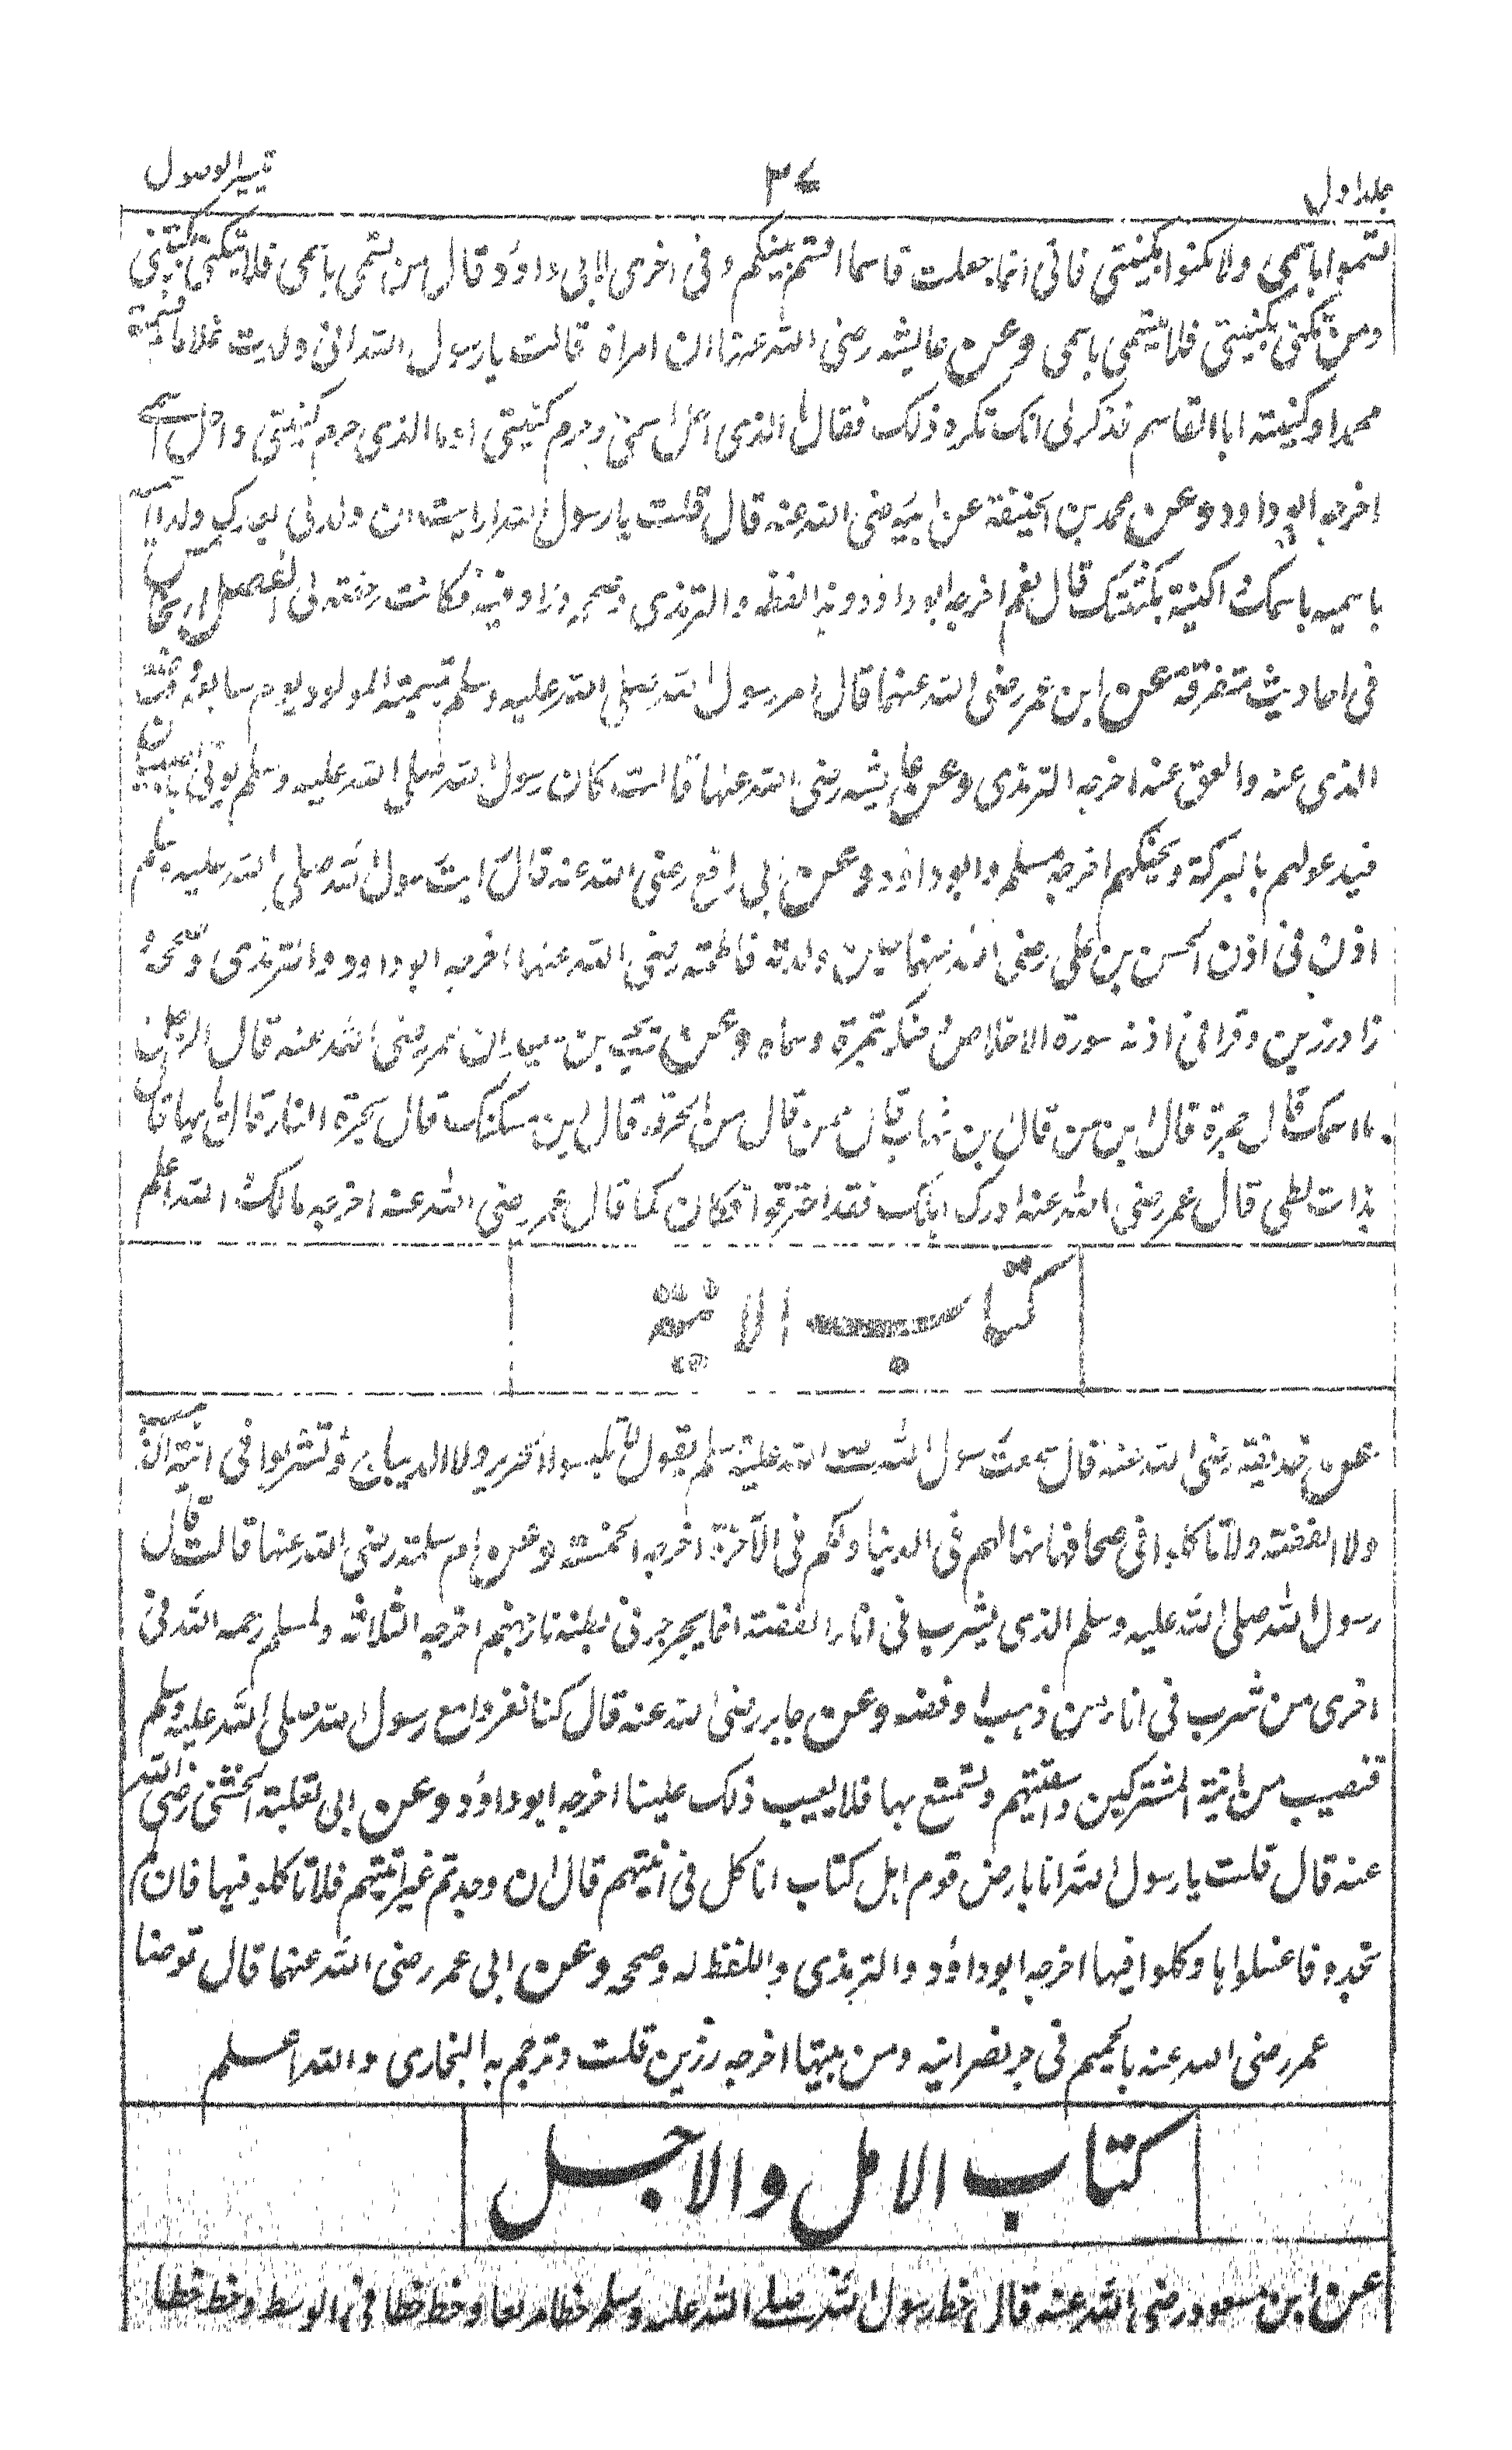 جلد اول
٣٤
تيسير الوصول
تسموا باسمي ولا تكنوا بكنيتي فاني انما جعلت قاسما اقسم بينكم وفي اخرى لابي داود قال من تسمى باسمي فلا يتكنى بكنيتي
ومن تكنى بكنيتي فلا يتسمى باسمي وعن عايشه رضي الله عنها ان امراة قالت يا رسول الله اني ولدت غلاما فسميته
محمدا وكنيته ابا القاسم فذكر لي انك تكره ذلك فقال ما الذي احل اسمي وحرم كنيتي او ما الذي حرم كنيتي واحل اسمي
اخرجه ابو داود وعن محمد بن الحنيفة عن ابيه رضي الله عنه قال قلت يا رسول الله ارايت ان ولد لي بعدك ولد
باسميه باسمك اكنيه بكنيتك قال نعم اخرجه ابو داود وهذا لفظه والترمذي وصححه وزاد فيه فكانت رخصته لي الفصل الخامس
في احاديث متفرقة عن ابن عمر رضي الله عنهما قال امر رسول الله صلى الله عليه وسلم بتسمية المولود يوم سابعه ووضع
الاذى عنه والعق عنه اخرجه الترمذي وعن عايشه رضي الله عنها قالت كان رسول الله صلى الله عليه وسلم يوتى بالصبيان
فيدعو لهم بالبركة ويحنكهم اخرجه مسلم وابو داود وعن ابي رافع رضي الله عنه قال رايت رسول الله صلى الله عليه وسلم
اذن في اذن الحسن بن علي رضي الله عنهما حين ولدته فاطمة رضي الله عنها اخرجه ابو داود والترمذي وصححه
زاد رزين وقرا في اذنه سورة الاخلاص وحنكه بتمرة وسماه وعن يحيى بن سعيد ان عمر رضي الله عنه قال لرجل
ما اسمك قال جمرة قال ابن من قال بن شهاب قال ممن قال من الحرقة قال اين مسكنك قال بحرة النار قال بايها قال
بذات لظى قال عمر رضي الله عنه ادرك اهلك فقد احترقوا فكان كما قال عمر رضي الله عنه اخرجه مالك والله اعلم
كتاب الانية
عن حذيفة رضي الله عنه قال سمعت رسول الله صلى الله عليه وسلم يقول لا تلبسوا الحرير ولا الديباج ولا تشربوا في انية الذهب
ولا الفضة ولا تاكلوا في صحافها فانها لهم في الدنيا ولكم في الآخرة اخرجه الخمسة وعن ام سلمة رضي الله عنها قالت قال
رسول الله صلى الله عليه وسلم الذي يشرب في انا ء الفضة انما يجرجر في بطنه نار جهنم اخرجه الثلاثة ولمسلم رحمه الله في
اخرى من شرب في اناء من ذهب او فضه وعن جابر رضي الله عنه قال كنا نغزوا مع رسول الله صلى الله عليه وسلم
فنصيب من انية المشركين واسقيتهم ونستمتع بها فلا يعيب ذلك علينا اخرجه ابو داود وعن ابي ثعلبة الخشني رضي الله
عنه قال قلت يا رسول الله انا بارض قوم اهل كتاب اناكل في انيتهم قال ان وجدتم غير انيتهم فلا تاكلوا فيها فان لم
تجدوا فاغسلوها وكلوا فيها اخرجه ابو داود والترمذي واللفظ له وصححه وعن ابي عمر رضي الله عنهما قال توضا
عمر رضي الله عنه بالحميم في جر نصرانيه ومن بيتها اخرجه رزين قلت وترجم به البخاري والله اعلم
كتاب الامل والاجل
عن ابن مسعود رضي الله عنه قال خط رسول الله صلى الله عليه وسلم خطا مربعا وخط خطا في الوسط وخط خطا